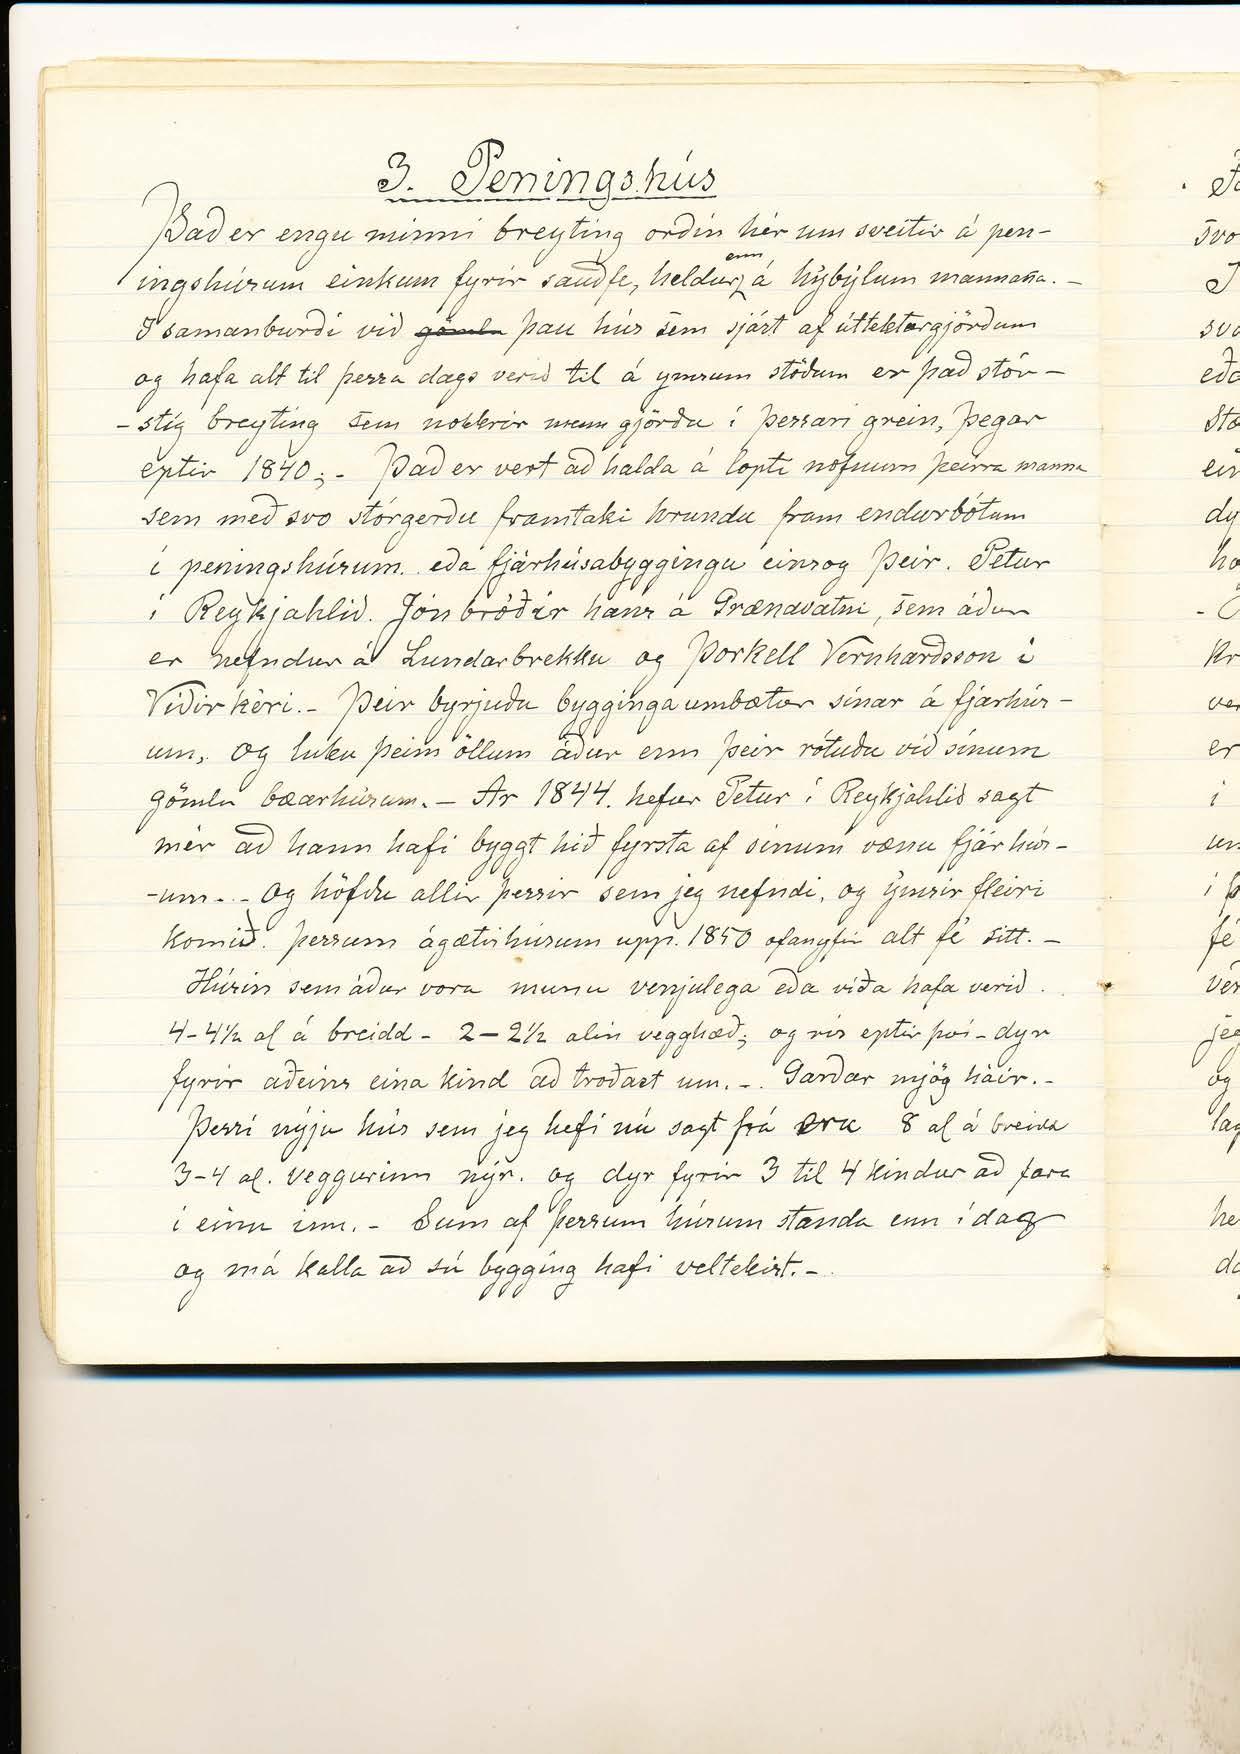 3. Peningshús
Það er engu minni breyting orðin hér um sveitir á pen-
ingshúsum einkum fyrir sauðfe, heldur enn á hýbýlum mannana. -
I samanburði við gömlu þau hús sem sjást af úttektargjörðum
og hafa alt til þessa dags verið til á ymsum stöðum er það stór-
-stíg breyting sem nokkrir menn gjörðu í þessari grein, þegar
eptir 1840; - Það er vert að halda á lopti nöfnum þeirra manna
sem með svo stórgerðu framtaki hrundu fram endurbótum
í peningshúsum. eða fjárhúsabyggingu einsog Þeir. Petur
í Reykjahlið. Jón bróðir hans á Grænavatni, sem áður
er nefndur á Lundarbrekku og Þorkell Vernharðsson í
Víðirkéri. - Þeir byrjuðu bygginga umbætur sínar á fjárhús-
um, og luku þeim öllum áður enn þeir rótuðu við sínum
gömlu bæarhúsum. - Ar 1844. hefur Petur í Reykjahlið sagt
mér að hann hafi byggt hið fyrsta af sínum vænu fjárhús-
-um. - Og höfðu allir þessir sem jeg nefndi, og ýmsir fleiri
komið. þessum ágætishúsum upp. 1850 ofanyfir alt fé sitt. -
Húsin sem áður voru munu venjulega eða víða hafa verið.
4-4½ al á breidd - 2-2½ alin vegghæð; og ris eptir því - dyr
fyrir aðeins eina kind að troðast um. -. Garðar mjög háir. -
Þessi nýju hús sem jeg hefi nú sagt frá eru 8 al á breidd
3-4 al. veggurinn nýr. og dyr fyrir 3 til 4 kindur að fara
í einu inn. - Sum af þessum húsum standa enn í dag
og má kalla að sú bygging hafi veltekist. -